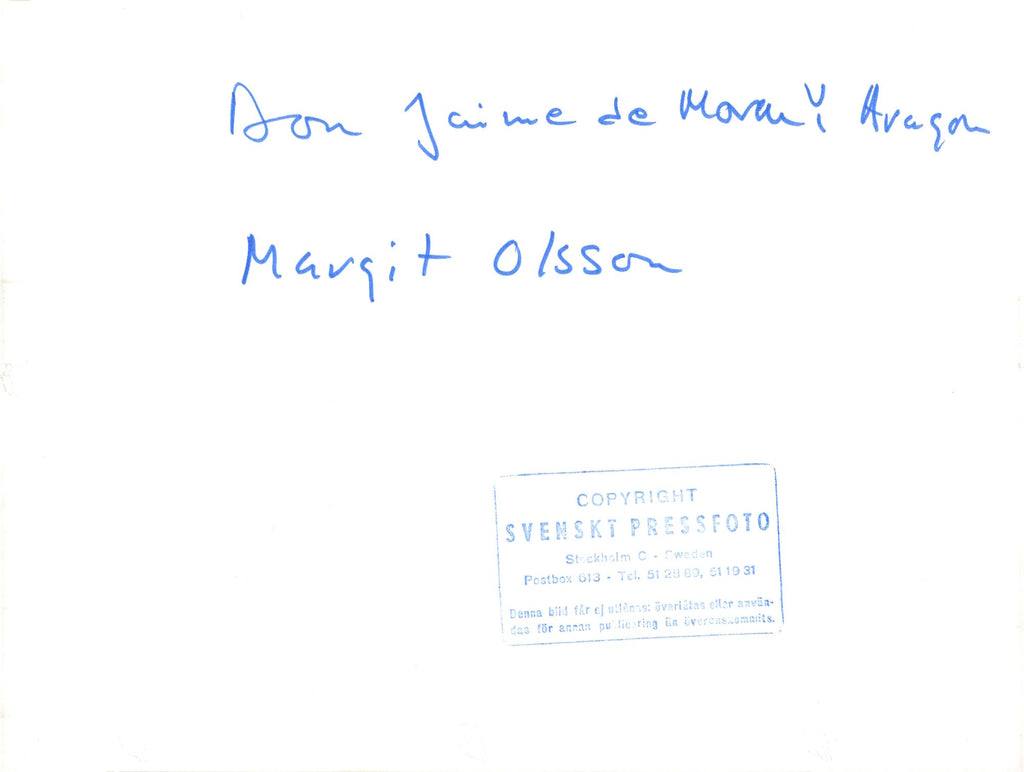 Don Jaime de Mora y Aragon
Margit Olsson
COPYRIGHT
SVENSKT PRESSFOTO
Stockholm C - Sweden
Postbox 613 - Tel. 51 28 89, 51 19 31
Denna bild får ej utlånas: överlåtas eller använ-
das för annan publicering än överenskommits.